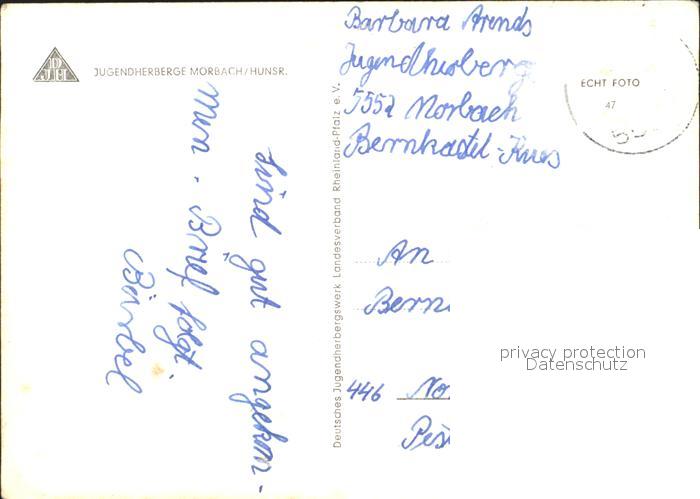 DJH
JUGENDHERBERGE MORBACH/HUNSR.
sind gut angekom-
men. Brief folgt.
Bärbel
Deutsches Jugendherbergswerk Landesverband Rheinland-Pfalz e. V.
Barbara Arends
Jugendherberg
5552 Morbach
Bernkastel-Kues
ECHT FOTO
47
An
Bern
446 No
privacy protection
Datenschutz